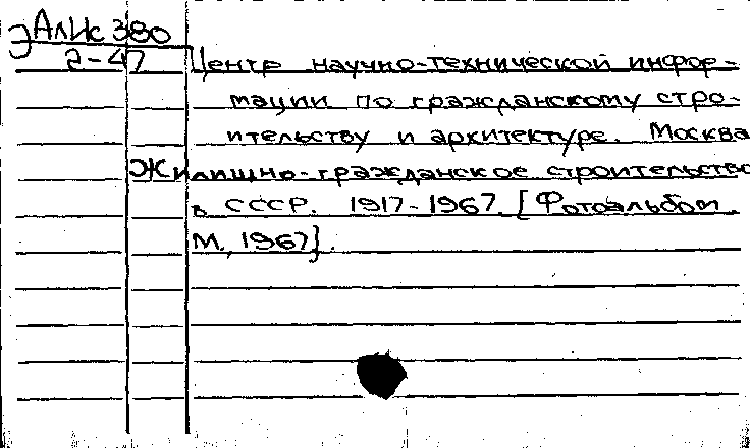 эАлИс 380
2-47
Центр научно-технической инфор-
мации по гражданскому стро-
ительству и архитектуре. Москва
Жилищно-гражданское строительство
в СССР. 1917-1967. [Фотоальбом.
М., 1967].